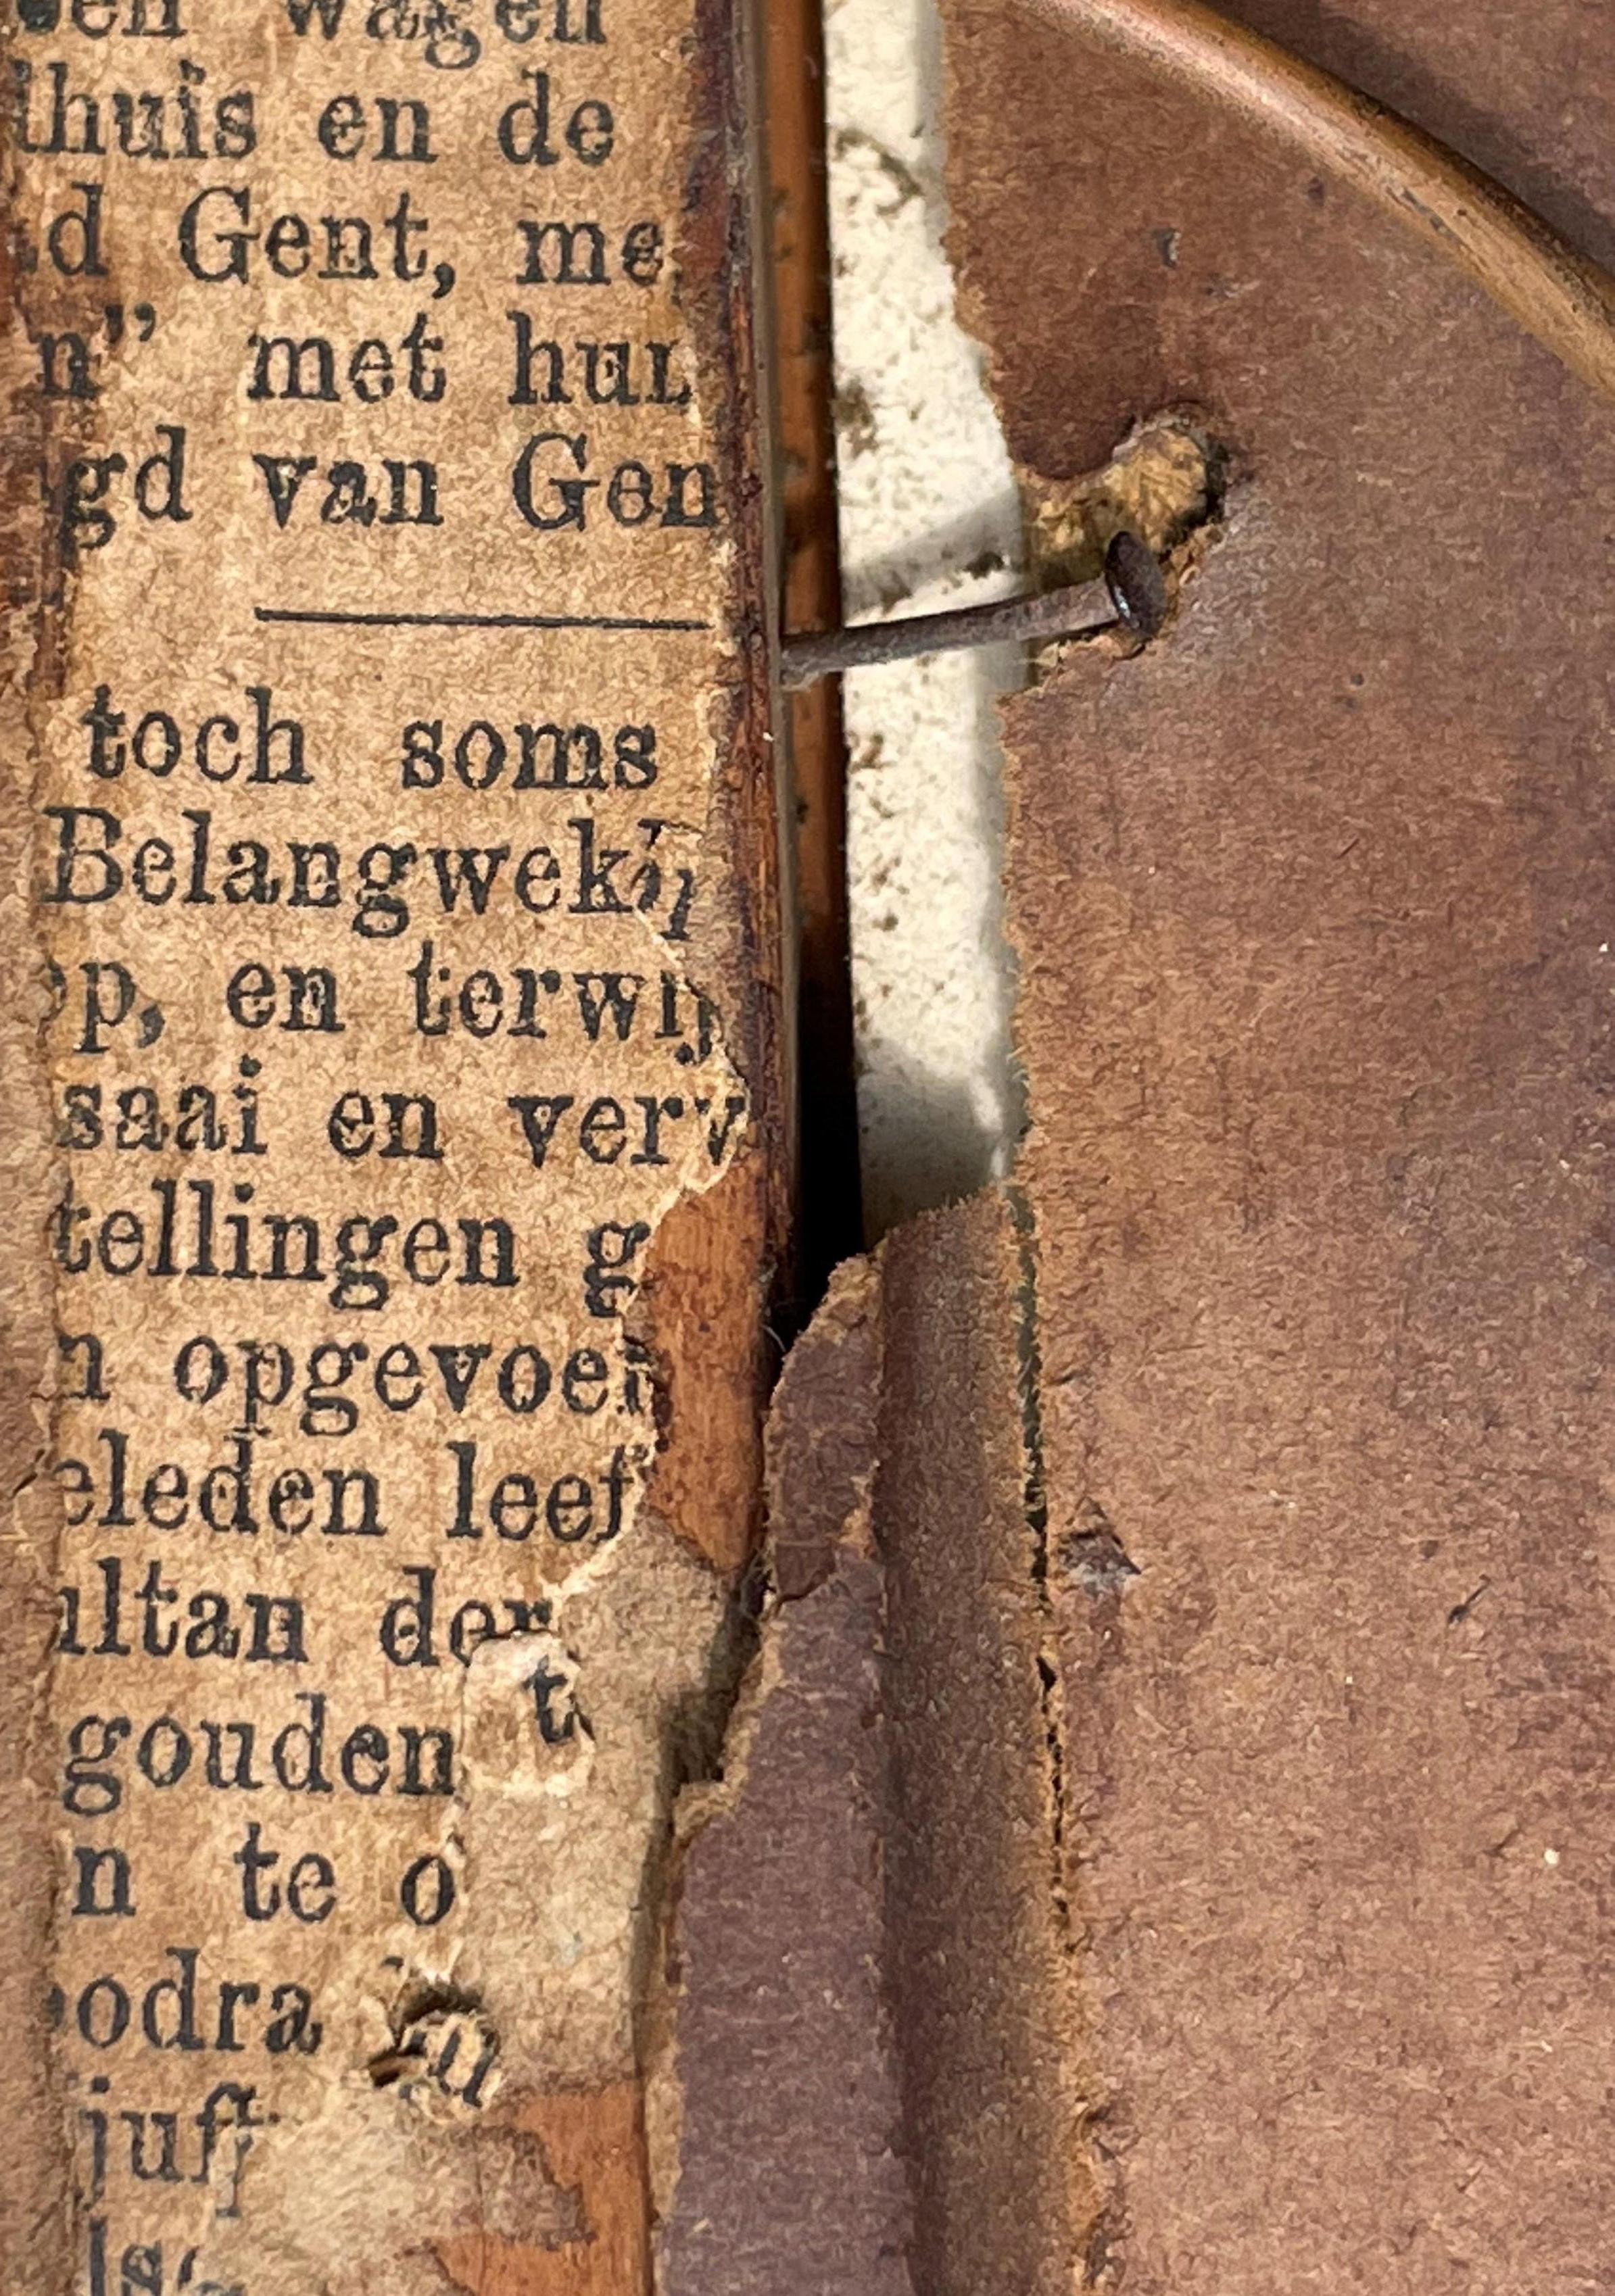 wagen
lhuis en de
d Gent, me
n” met hun
gd van Gen
toch soms
Belangwek
p, en terwij
saai en verv
tellingen g
n opgevoer
eleden leef
ultan der
t
gouden
n te o
odra
juff
ls